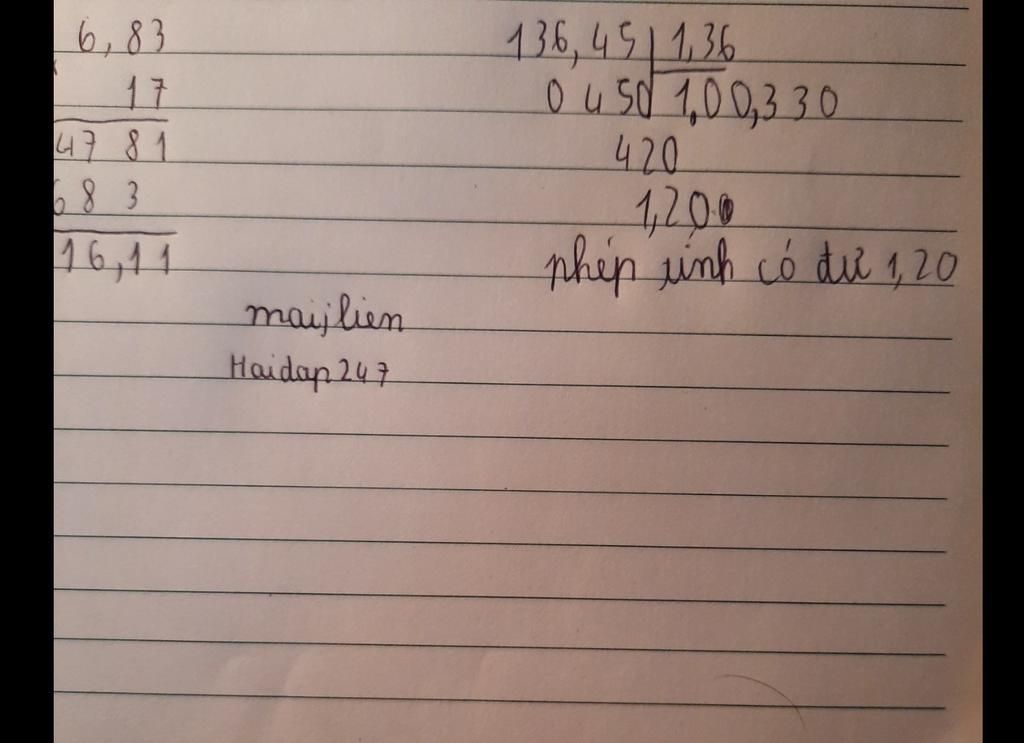 6,83
17
47 81
68 3
116,11
136,45 1,36
0 450 1,00,330
420
1,200
phép tính có dư 1,20
maijlien
Hoidap247